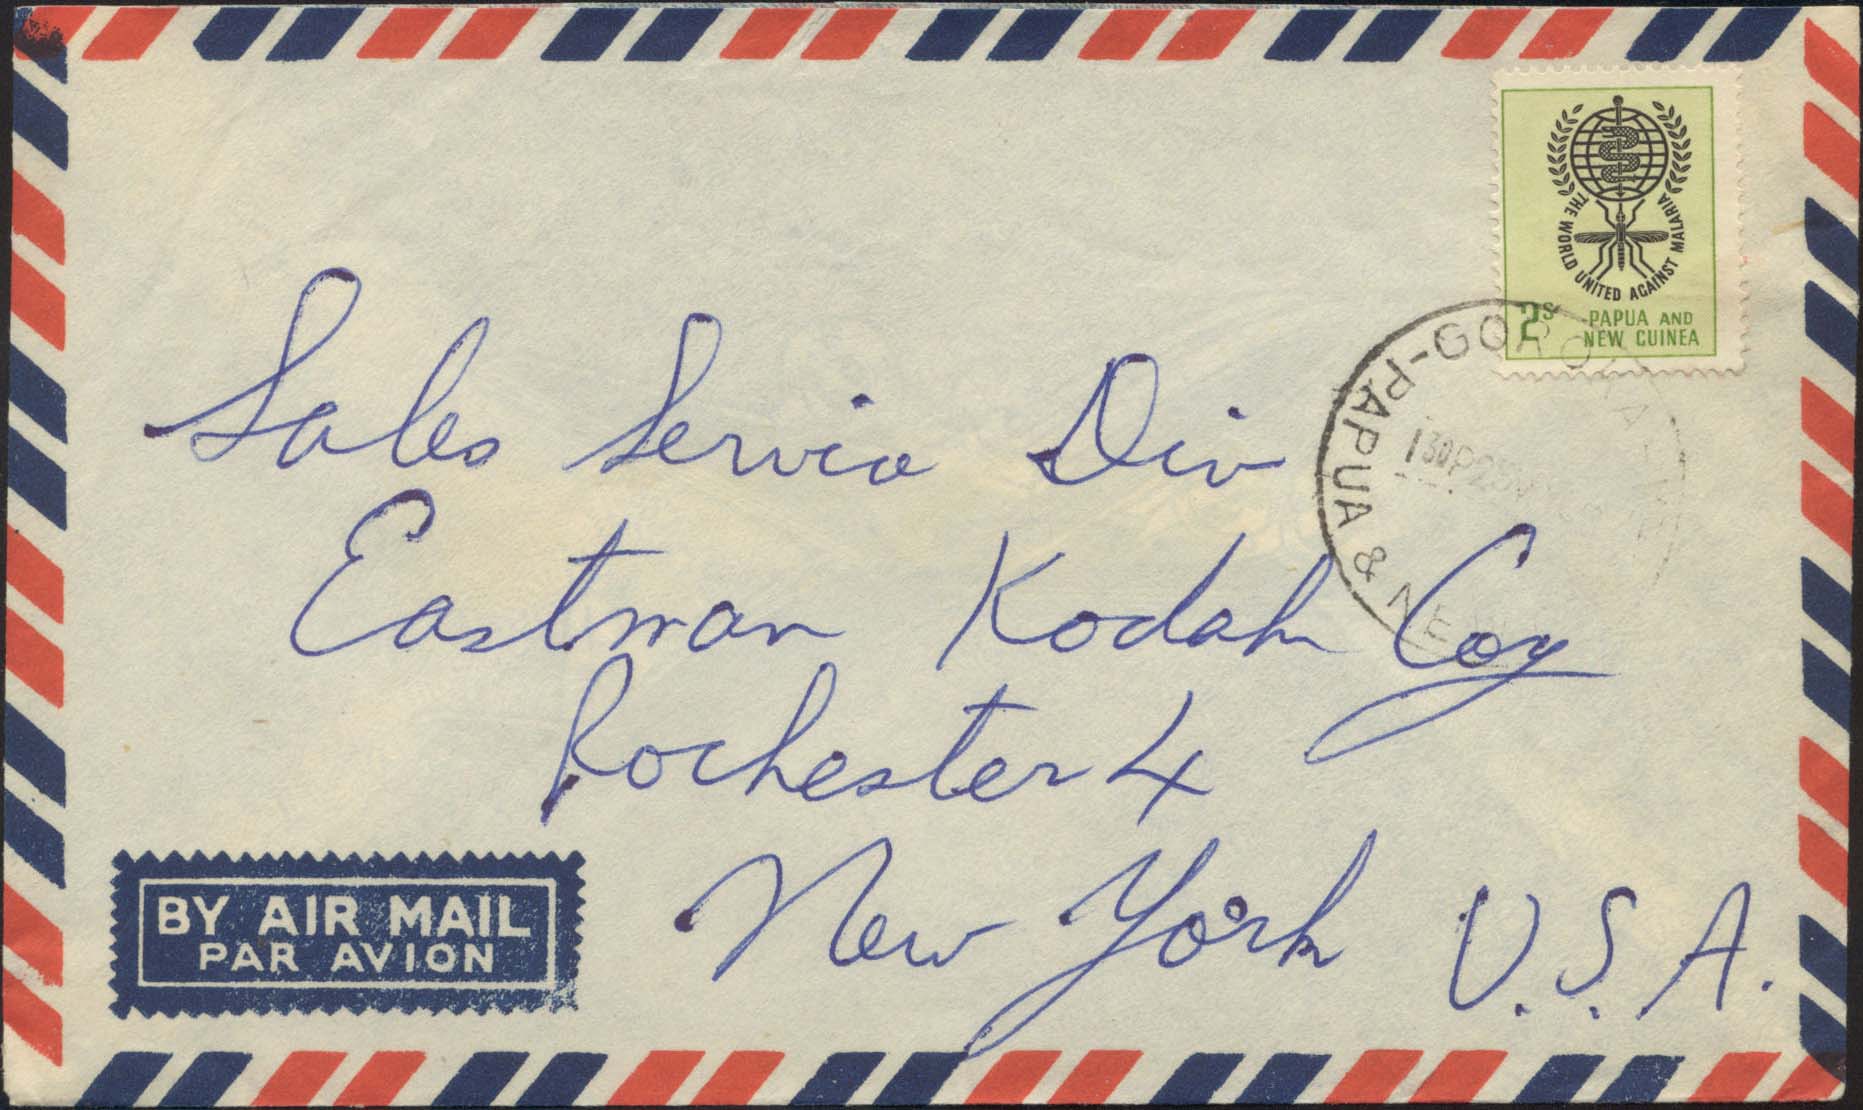 THE WORLD UNITED AGAINST MALARIA
2s PAPUA AND
NEW GUINEA
GOROKA
PAPUA & NEW
130P25
Sales Service Div
Eastman Kodak Coy
Rochester 4
New York U.S.A.
BY AIR MAIL
PAR AVION